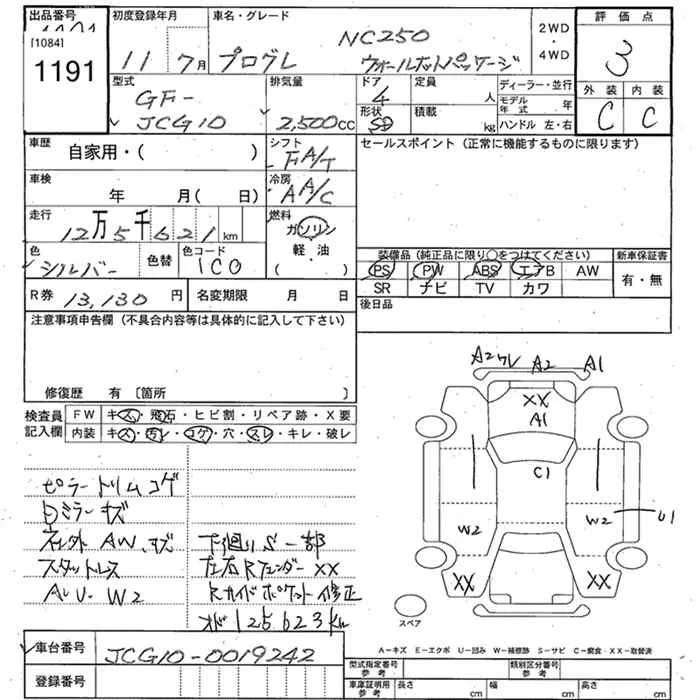 出品番号 初度登録年月 車名・グレード 2WD・4WD 評価点
[1084]
1191
11 7月 プログレ NC250
ウォールナットパッケージ
3
外装 内装
C C
型式 排気量 ドア 定員 ディーラー・並行
GF-
JCG10 2,500cc 4 人 モデル年式 年
形状 積載 kg ハンドル 左・右
SD
車歴 自家用・( ) シフト FA/T セールスポイント(正常に機能するものに限ります)
車検 年 月( 日) 冷房 AA/C
走行 12万5千621km 燃料 ガソリン 軽・油 ( )
色 シルバー 色替 色コード 1C0
装備品(純正品に限り○をつけてください) 新車保証書
PS PW ABS エアB AW 有・無
SR ナビ TV カワ
R券 13,130円 名変期限 月 日 後日品
注意事項申告欄(不具合内容等は具体的に記入して下さい)
修復歴 有〔箇所 〕
検査員記入欄 FW キズ・飛石・ヒビ割・リペア跡・X要
内装 キズ・汚レ・コゲ・穴・スレ・キレ・破レ
ピラートリムコゲ
ミラーキズ
右外AW、キズ 下廻りS一部
スタットレス 左右Rフェンダー XX
AU・W2
修正
125623km
A2 A2 A1
XX
A1
C1
W2 W2 U1
XX XX
スペア
A-キズ E-エクボ U-凹み W-補修跡 S-サビ C-腐食・XX-取替済
車台番号 JCG10-0019242
登録番号
型式指定番号 参考 類別区分番号 参考
車庫証明用 参考 長さ cm 幅 cm 高さ cm